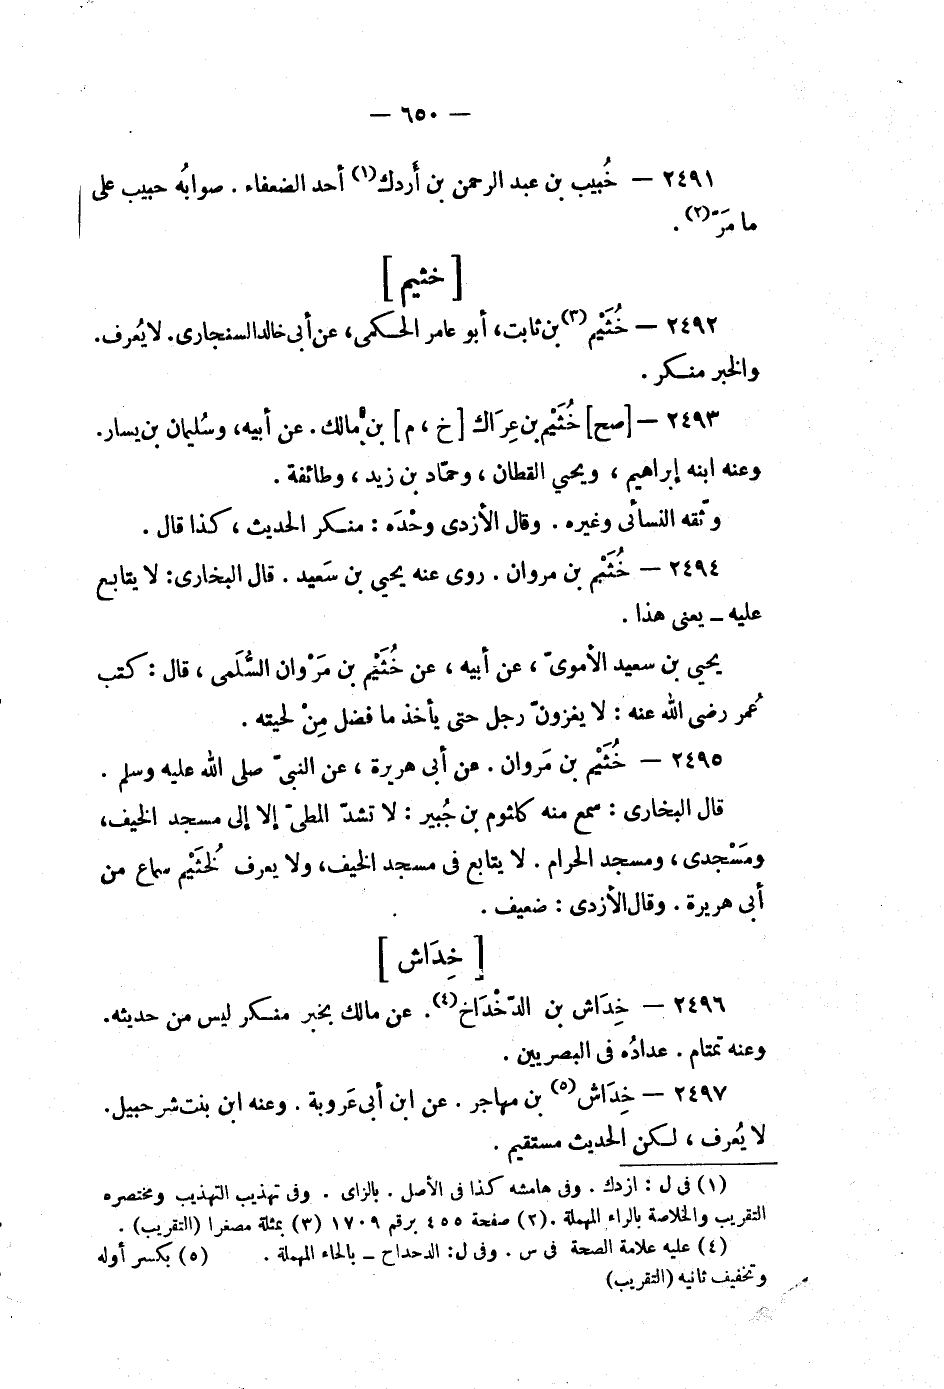 — ٦٥٠ —
٢٤٩١ — خُبيب بن عبد الرحمن بن أَردك(١) أحد الضعفاء . صوابُه حبيب على
ما مَرّ(٢) .
[ خثيم ]
٢٤٩٢ — خُثَيْم(٣) بن ثابت، أبو عامر الحكمى، عن أبى خالد السنجارى. لا يُعرف.
والخبر منكر .
٢٤٩٣ — [صح] خُثَيْم بن عِرَاك [ خ ، م ] بن مالك. عن أبيه، وسُليمان بن يسار.
وعنه ابنه إبراهيم ، ويحيي القطان ، وحمّاد بن زيد ، وطائفة .
وثّقه النسأئى وغيره . وقال الأزدى وحْدَه : منكر الحديث ، كذا قال .
٢٤٩٤ — خُثَيْم بن مروان . روى عنه يحيي بن سَعيد . قال البخارى: لا يتابع
عليه ــ يعنى هذا .
يحيي بن سعيد الأموىّ ، عن أبيه ، عن خُثَيْم بن مَرْوان السُّلَمى ، قال : كتب
عُمر رضى الله عنه : لا يغزونّ رجل حتى يأخذ ما فضل مِنْ لحيته .
٢٤٩٥ — خُثَيْم بن مَروان . عن أبى هريرة ، عن النبىّ صلى الله عليه وسلم .
قال البخارى : سمع منه كلثوم بن جُبير : لا تشدّ المطىّ إلا إلى مسجد الخيف،
ومَسْجدى ، ومسجد الحرام . لا يتابع فى مسجد الخيف، ولا يعرف لُخثَيْم سماع من
أبى هريرة . وقال الأزدى : ضعيف .
[ خِدَاش ]
٢٤٩٦ — خِدَاش بن الدّخْدَاخ(٤). عن مالك بخبر منكر ليس من حديثه.
وعنه تمتام . عدادُه فى البصريين .
٢٤٩٧ — خِدَاش(٥) بن مهاجر . عن ابن أبى عَروبة . وعنه ابن بنت شرحبيل.
لا يُعرف ، لكن الحديث مستقيم .
(١) فى ل : ازدك . وفى هامشه كذا فى الأصل . بالزاى . وفى تهذيب التهذيب ومختصره
التقريب والخلاصة بالراء المهملة .(٢) صفحة ٤٥٥ برقم ١٧٠٩ (٣) بمثلة مصغرا (التقريب) .
(٤) عليه علامة الصحة فى س . وفى ل: الدحداح ــ بالحاء المهملة . (٥) بكسر أوله
وتخفيف ثانيه (التقريب)